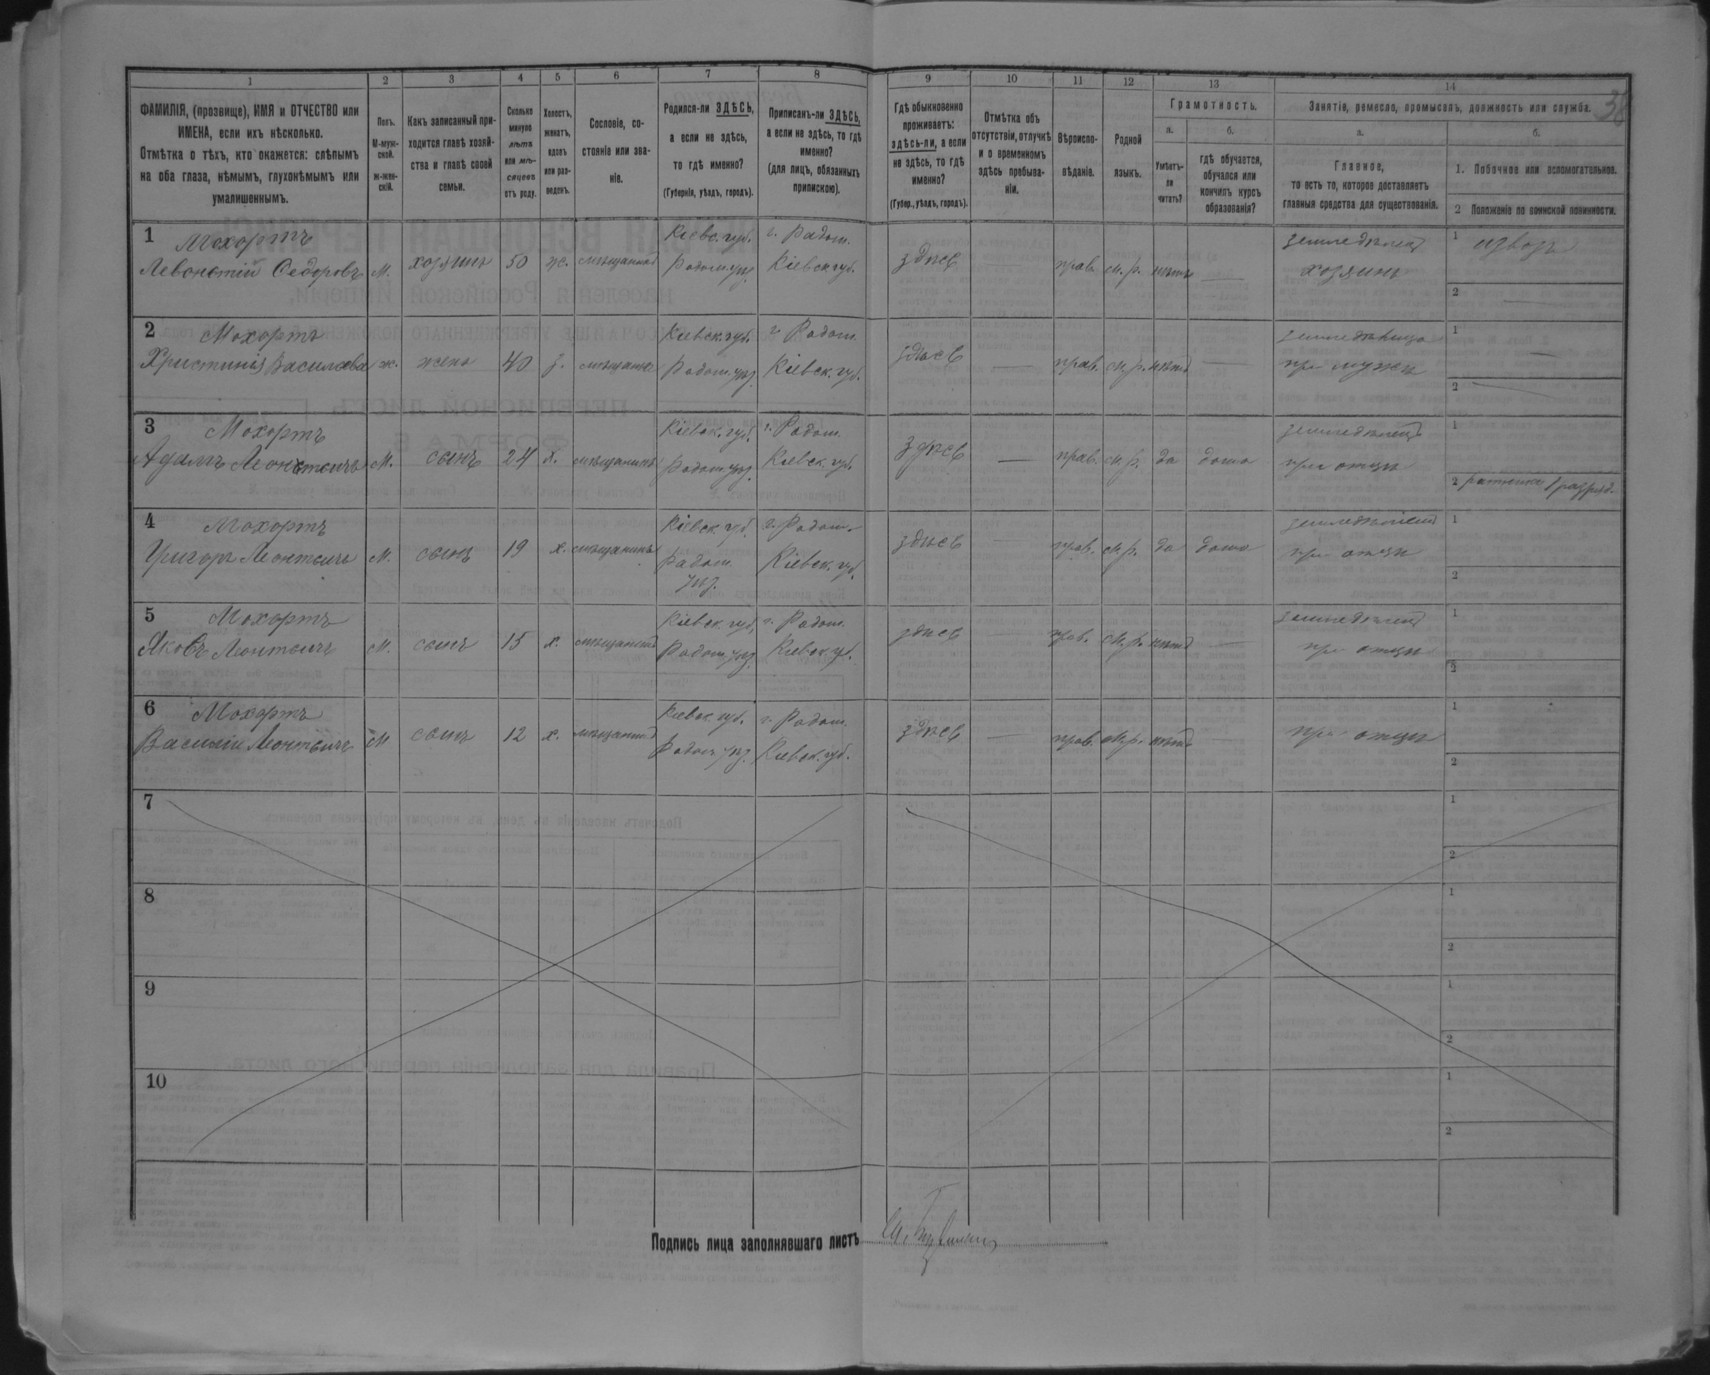 1 2 3 4 5 6 7 8 9 10 11 12 13 14
ФАМИЛІЯ, (прозвище), ИМЯ и ОТЧЕСТВО или
ИМЕНА, если ихъ нѣсколько.
Отмѣтка о тѣхъ, кто окажется: слѣпымъ
на оба глаза, нѣмымъ, глухонѣмымъ или
умалишеннымъ.
Полъ.
М-муж-
ской.
ж-жен-
скій.
Какъ записанный при-
ходится главѣ хозяй-
ства и главѣ своей
семьи.
Сколько
минуло
лѣтъ
или мѣ-
сяцевъ
отъ роду.
Холостъ,
женатъ,
вдовъ
или раз-
веденъ.
Сословіе, со-
стояніе или зва-
ніе.
Родился-ли ЗДѢСЬ,
а если не здѣсь,
то гдѣ именно?
(Губернія, уѣздъ, городъ).
Приписанъ-ли ЗДѢСЬ,
а если не здѣсь, то гдѣ
именно?
(для лицъ, обязанныхъ
припискою).
Гдѣ обыкновенно
проживаетъ:
здѣсь-ли, а если
не здѣсь, то гдѣ
именно?
(Губер., уѣздъ, городъ).
Отмѣтка объ
отсутствіи, отлучкѣ
и о временномъ
здѣсь пребыва-
ніи.
Вѣроиспо-
вѣданіе.
Родной
языкъ.
Грамотность.
а.
Умѣетъ-
ли
читать?
б.
гдѣ обучается,
обучался или
кончилъ курсъ
образованія?
Занятіе, ремесло, промыселъ, должность или служба.
38
а.
Главное,
то есть то, которое доставляетъ
главныя средства для существованія.
б.
1. Побочное или вспомогательное.
2 Положеніе по воинской повинности.
1 Мохортъ Кіевс. губ. г. Радом. земледѣлецъ 1 извозъ
Левонтій Федоровъ М. хозяинъ 50 ж. мѣщанинъ Радом. уѣз. Кіевск. губ. здѣсь прав. м. р. нѣтъ — хозяинъ
2
2 Мохортъ Кіевск. губ. г. Радом. 1
Христинія Васильева ж. жена 40 з. мѣщанка Радом. уѣз. Кіевск. губ. здѣсь — прав. м. р. нѣтъ — при мужѣ
2
3 Мохортъ Кіевск. губ. г. Радом. земледѣлецъ 1
Адамъ Леонтьичъ М. сынъ 24 х. мѣщанинъ Радом. уѣз. Кіевск. губ. здѣсь — прав. м. р. да дома при отцѣ
2 ратникъ 1 разряд.
4 Мохортъ Кіевск. губ. г. Радом. земледѣлецъ 1
Григоръ Леонтьичъ М. сынъ 19 х. мѣщанинъ Радом. Кіевск. губ. здѣсь — прав. м. р. да дома при отцѣ
уѣз. 2
5 Мохортъ Кіевск. губ. г. Радом. земледѣлецъ 1
Яковъ Леонтьичъ М. сынъ 15 х. мѣщанинъ Радом. уѣз. Кіевск. губ. здѣсь — прав. м. р. нѣтъ — при отцѣ
2
6 Мохортъ Кіевск. губ. г. Радом. 1
Василій Леонтьичъ М сынъ 12 х. мѣщанинъ Радом. уѣз. Кіевск. губ. здѣсь — прав. м. р. нѣтъ — при отцѣ
2
7 1
2
8 1
2
9 1
2
10 1
2
Подпись лица заполнявшаго листъ